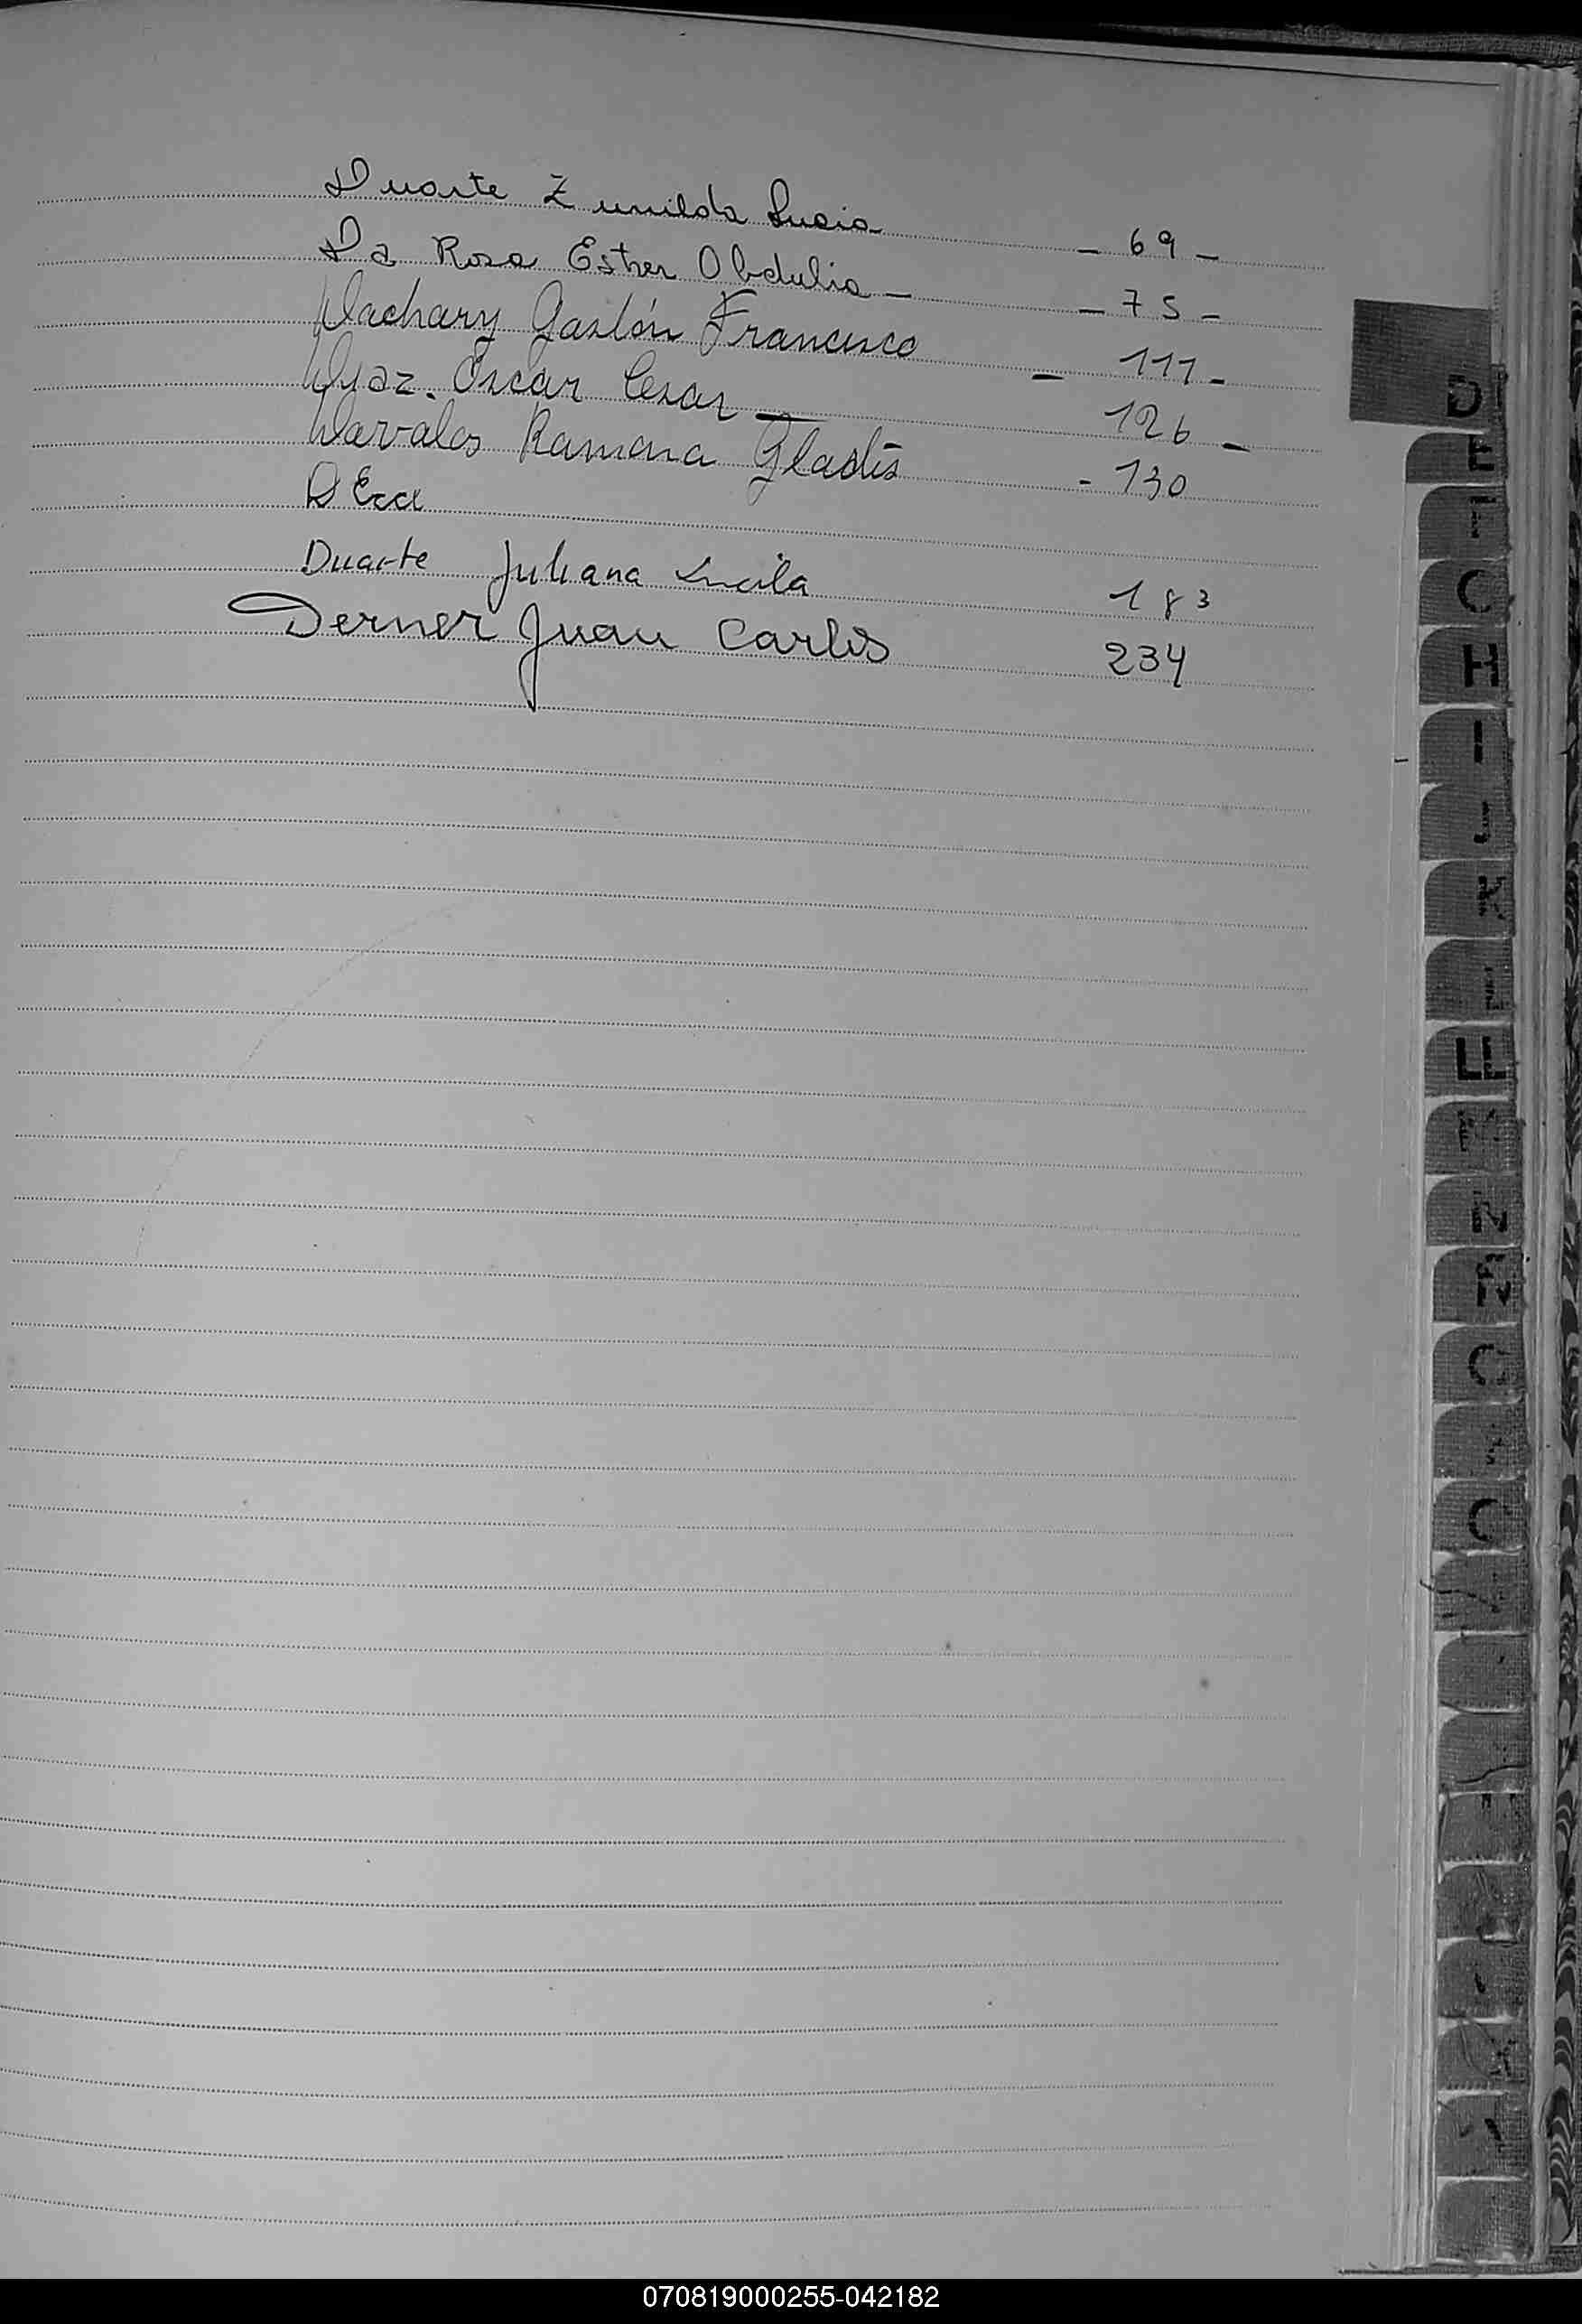 Duarte Zunilda Lucia - 69 -
Da Rosa Esther Obdulia - - 75 -
Dachary Gastón Francisco - 111 -
Diaz Oscar Cesar - 126 -
Davalos Ramona Gladis - 130
Duarte Juliana Lucila 183
Derner Juan Carlos 234
D
E
F
G
H
I
070819000255-042182